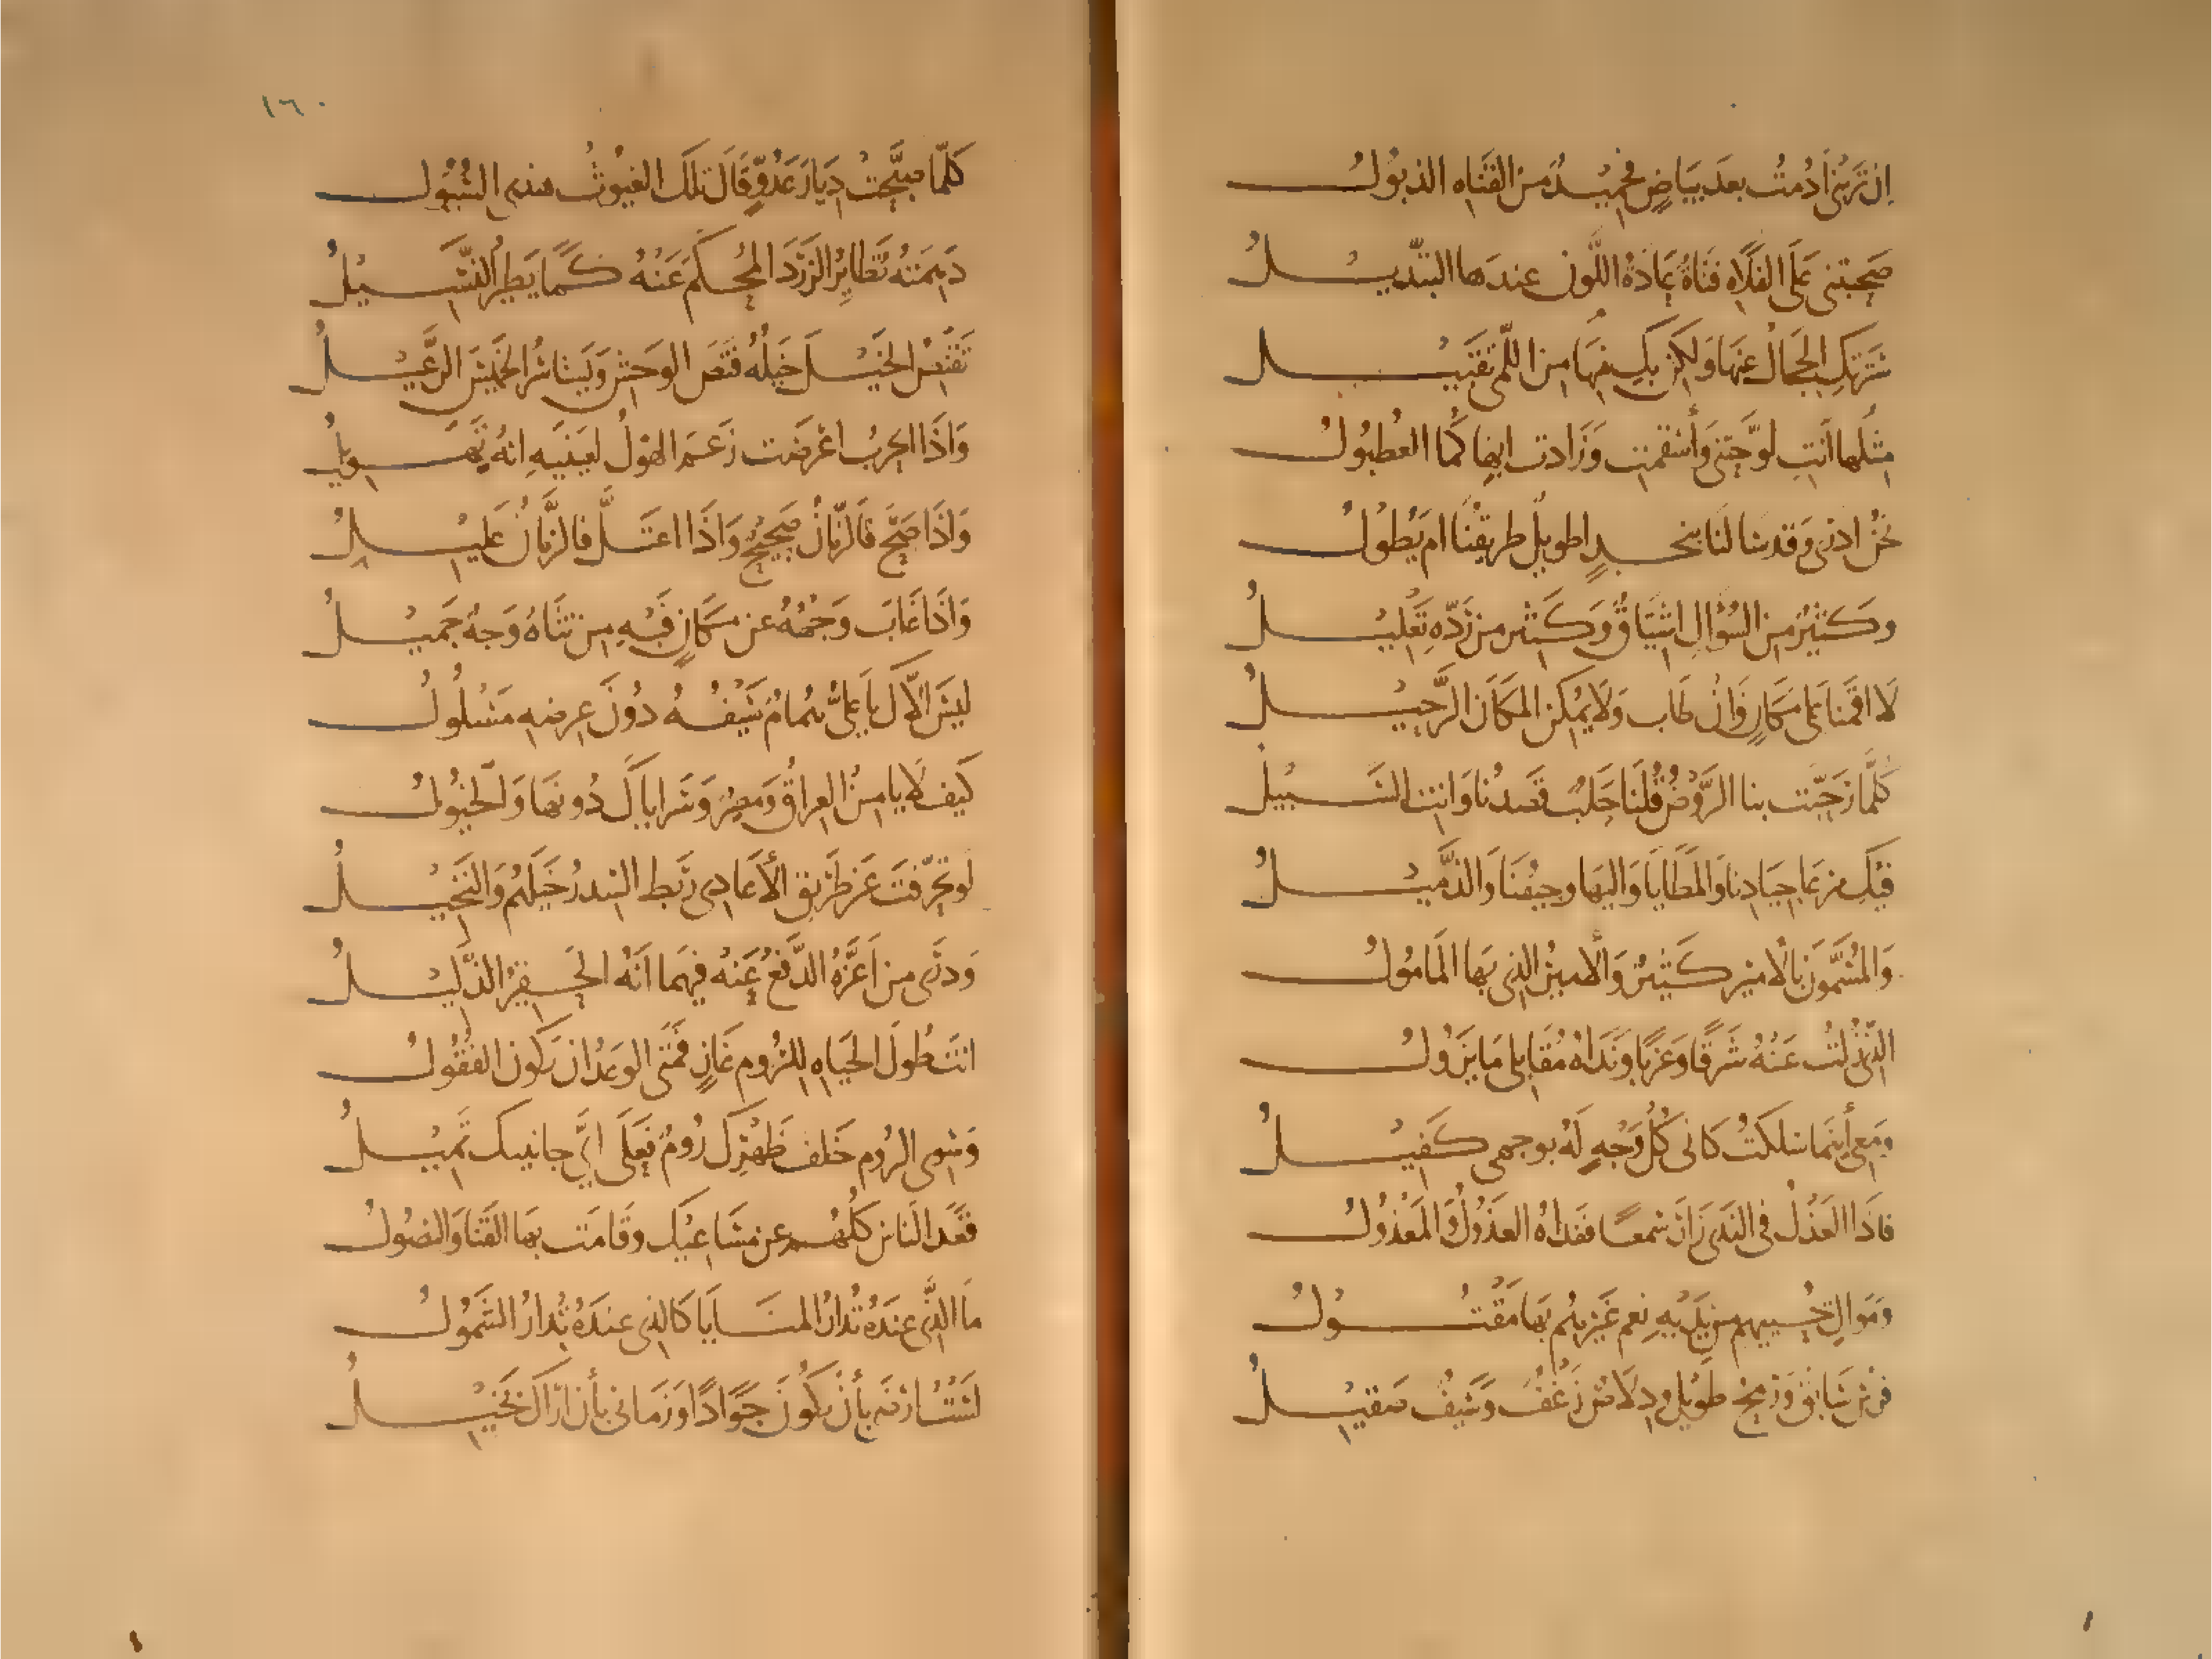 اِن تَرَيْنِي اَدُمتُ بعدَ بيَاضٍ فحَمِيْدٌ مِنَ القَنَاهِ الذبُولُ
صَحِبَتنى عَلَى الفَلَاهِ فَتَاةٌ عَادَةُ اللَّون عندَها التبْديلُ
سَتَرتكِ الحِجَالُ عنهَا وَلكِن بكِ منهَا مِن اللَّمى تَقبيْل
مِثلُها اَنتِ لوَّحَتنى وَأسقمتِ وَزَادت ابهاكُما العُطبُولُ
نحْنُ ادنى وَقد سَالنَا بنجدٍ اطويلٌ طريقُنَا ام يَطُولُ
وكَثيْرٌ مِنَ السُؤالِ اشتيَاقٌ وَكَثير من رَدّهِ تَعْليْلُ
لَا اقمنَا عَلى مَكَانٍ وَان طَاب وَلَا يُمكِن المكَانَ الرَّحيْلُ
كُلَّما رَحَّبَت بنا الرَّوْضُ قُلنَا حَلبٌ قَصدُنَا وَانتِ السَّبيْلُ
فيْكِ مرعَى جيَادِنا وَالمطَايَا وَاليهَا وجيفُنَا وَالذَّميْلُ
وَالمُسَمَّوْنَ بالأميْر كَثيْرٌ وَالأميْرُ الذِى بهَا المَامُولُ
الذّى زُلتُ عَنْهُ شَرقًا وَغَربًا ونَدَاهُ مُقَابلى مَا يَزُولُ
وَمَعى أينَمَا سَلكتُ كَانى كُلُّ وَجْهٍ لَهُ بوجهى كَفيْلُ
فاذَا العَذْلُ فى النَدَى زَارَ سَمعًا ففدَاهُ العَذُولُ وَالمَعْذُولُ
وَمَوَالٍ تُحييهم من يَدَيْهِ نِعَم غَيْرهُم بهَا مَقْتُوْلُ
فرَسٌ سَابقٌ وَرُمحٌ طَويْلٌ ودِلَاصٌ زَغْفٌ وَسَيفٌ صَقيْلُ
١٦٠
كُلّما صَبَّحتْ دِيَارَ عَدُوٍّ قَالَ تلكَ الغيُوثُ هذى السُّيُولُ
دَهِمَتهُ تُطَايِرُ الزَّرَدَ المُحكَمَ عَنْهُ كَمَا يَطيرُ النَّسيْلُ
تَقْنِصُ الخَيْلَ خَيلُهُ قَنَصَ الوَحشِ وَيَستَاسرُ الخَميْسَ الرَّعيْلُ
وَاذَا الحربُ اعْرضت زَعمَ الهَوْلُ لعيْنَيهِ انهُ تَهْويلُ
وَاذَا صَحَّ فَالزّمَانُ صَحِيْحٌ وَاذَا اعتَلَّ فالزَّمَانُ عَليْلُ
وَاذَا غَابَ وَجْهُهُ عن مَكَانٍ فَبهِ مِن ثنَاهُ وَجهٌ جَميْلُ
ليسَ الّاكَ يَا عَلىُّ هُمَامٌ سَيْفُهُ دُونَ عِرضهِ مَسْلُولُ
كَيفَ لَا يامَنُ العِراقُ وَمِصْرٌ وَسَرايَاكَ دُونهَا وَالخيُولُ
لو تحرَّفتَ عَن طَريق الأعَادِى رَبَط السِّدرُ خَيلَهُم وَالنَّخيْلُ
وَدَرَى مَن اَعَزَّهُ الدَّفعُ عَنهُ فيهِمَا انَّهُ الحَقيْرُ الذَّليْلُ
انتَ طُولَ الحيَاهِ للرُّوم غَازٍ فمَتَى الوَعدُ ان يَكونَ القفُولُ
وسِوى الرُوم خَلفَ ظَهْركَ رُومٌ فعَلَى اىِّ جانبيك تَميْلُ
قَعَدَ النَاسُ كُلُّهُم عن مسَاعيْكَ وَقَامَت بهَا القَنَا وَالنصُولُ
مَا الذِّى عنِدَهُ تُدَارُ المنَايَا كَالذِى عندَهُ تُدَارُ الشَمُولُ
لَسْتُ ارْضَى بأنْ تَكُوْنَ جَوَادًا وَزَمَانى بأن ارَاكَ بخيْلُ